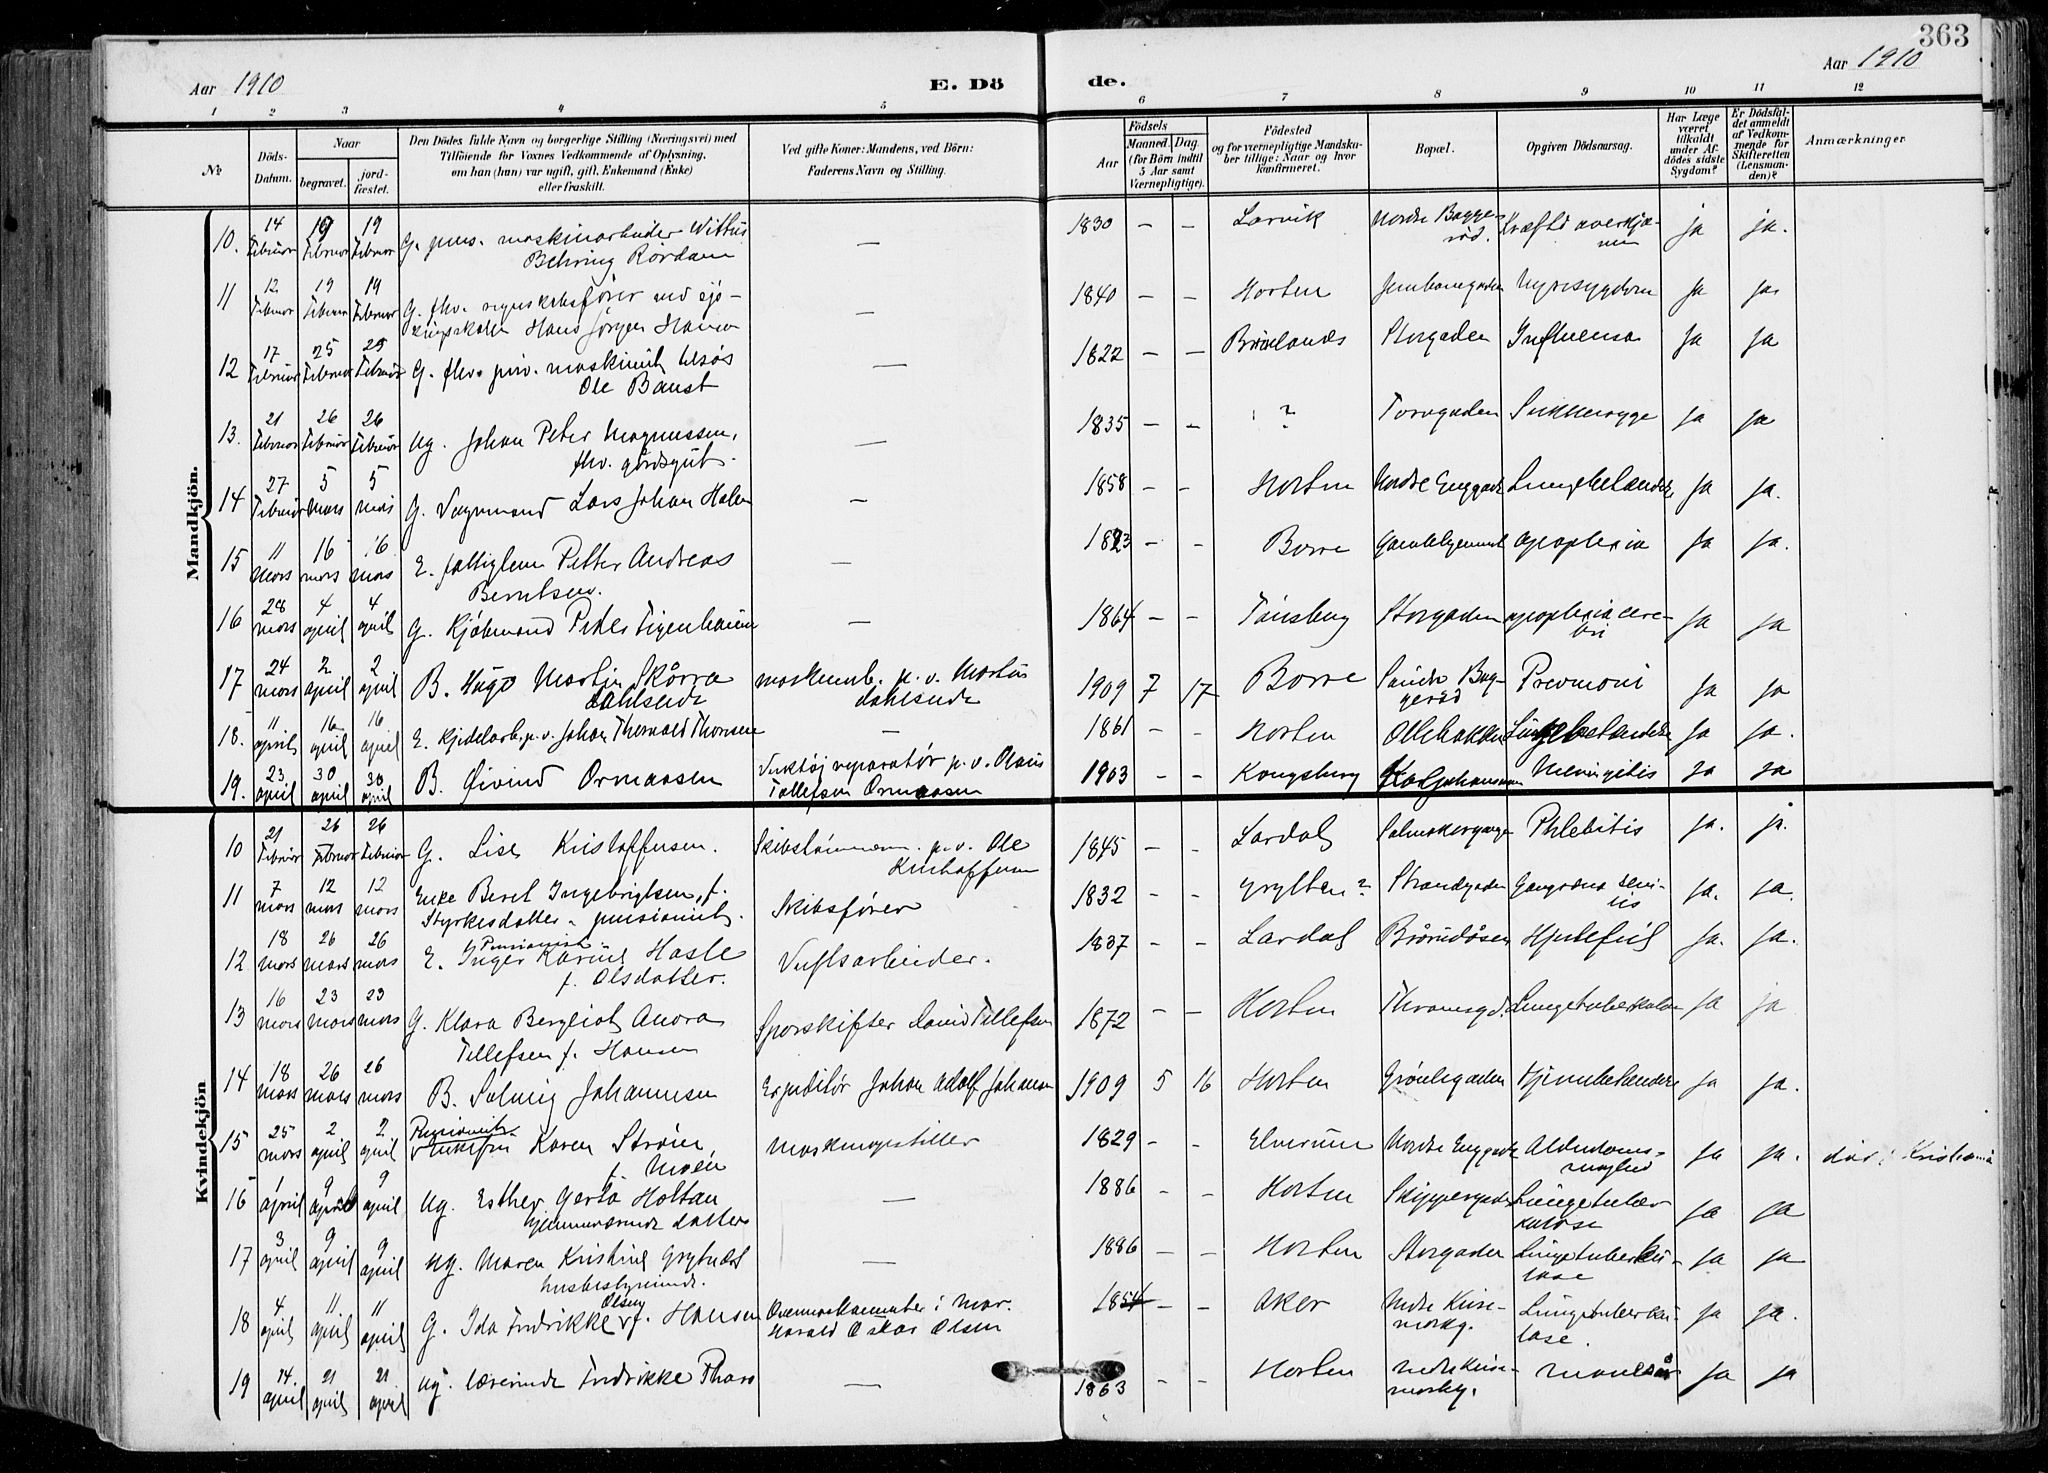 363
Aar 1910
E. Dö
de.
Aar 1910
1 2 3 4 5 6 7 8 9 10 11 12
№
Döds-Datum.
Naar
begravet.
jord-fæstet.
Den Dödes fulde Navn og borgerlige Stilling (Næringsvei) med
Tilföiende for Voxnes Vedkommende af Oplysning,
om han (hun) var ugift, gift, Enkemand (Enke)
eller fraskilt.
Ved gifte Koner: Mandens, ved Börn:
Faderens Navn og Stilling.
Födsels
Aar
Maaned. Dag.
(for Börn indtil
5 Aar samt
Værnepligtige).
Födested
og for værnepligtige Mandska-
ber tillige: Naar og hvor
konfirmeret.
Bopæl.
Opgiven Dödsaarsag.
Har Læge
været
tilkaldt
under Af-
dödes sidste
Sygdom?
Er Dödsfal-
det anmeldt
af Vedkom-
mende for
Skifteretten
(Lensman-
den)?
Anmærkninger
Mandkjön.
10. 14 Februar 19 Februar 19 Februar G. pens. maskinarbeider Wittus — 1830 — — Larvik Nordre Bagge- Kræft i overkjæ- ja ja.
Behring Rördam röd. ven
11 12 Februar 19 Februar 19 Februar G. fhv. regnskabsförer ved sjö- — 1840 — — Horten Jernbanegaden Nyresygdom ja ja
krigsskolen Hans Jörgen Hansen
12 17 Februar 25 Februar 25 Februar G. fhv. priv. maskinist — 1822 — — Storgaden Influensa ja ja
Ole Baust
13. 21 Februar 26 Februar 26 Februar ug. Johan Peter Magnussen, — 1835 — — ? Torvgaden Sukkersyge ja ja
fhv. gårdsgut.
14 27 Februar 5 mars 5 mars G. Vognmand Lars Johan Halen — 1858 — — Horten Nordre Enggade Lungebetændelse ja ja.
15 11 mars 16 mars 16 mars E. fattiglem Petter Andreas — 1823 — — Borre Gamlehjemmet apoplexia ja ja.
Berntsen.
16 28 mars 4 april 4 april G. Kjöbmand Peder Figenbaum — 1864 — — Tönsberg Storgaden apoplexia cere- ja ja
bri
17 24 mars 2 april 2 april B. Hugo Martin Skårra maskinarb. p. v. Martin 1909 7 17 Borre Söndre Bag- Pnevmoni ja ja
Dahlseide Dahlseide geröd
18. 11 april 16 april 16 april E. Kjedelarb. p. v. Johan Thorvald Thomsen — 1861 — — Horten Ollebakken Lungebetændelse ja ja.
19. 23 april 30 april 30 april B. Øivind Ormaasen Verktöjreparatör p. v. Olaus 1903 — — Kongsberg Karljohansvern Meningitis ja ja
Tollefsen Ormaasen
Kvindekjön
10 21 Februar 26 Februar 26 Februar G. Lise Kristoffersen. Skibstömmerm. p. v. Ole 1845 — — Lardal Salmakergangen Phlebitis ja. ja.
Kristoffersen
11 7 mars 12 mars 12 mars Enke Beret Ingebrigtsen, f. Skibsförer 1832 — — Grytten? Strandgaden Gangræna seni- ja. ja.
Styrkesdatter - pensionist. lis
12 18 mars 26 mars 26 mars E. Pensionist Inger Karine Hasle Verftsarbeider. 1837 — — Lardal Hjertefeil ja. ja.
f. Olsdatter.
13 16 mars 23 mars 23 mars G. Klara Bergliot Anora Sporskifter David Tellefsen 1872 — — Horten Thranesgd. Lungetuberkulose ja ja
Tellefsen f. Hansen
14 18 mars 26 mars 26 mars B. Solveig Johannesen Expeditör Johan Adolf Johansen 1909 5 16 Horten Grönlisgaden Hjernebetændelse ja ja.
15 25 mars 2 april 2 april Pensionist Enkefru Karen Ström Maskinopstiller 1829 — — Elverum Nordre Enggade Alderdoms- ja ja. död i Kristiania
f. Moen svaghed
16 1 april 9 april 9 april ug. Esther Gerda Holtan — 1886 — — Horten Skippergaden Lungetuber- ja ja
hjemmeværende datter kulose
17 3 april 9 april 9 april ug. Maren Kristine Grytnæs — 1886 — — Horten Storgaden Lungetuberku- ja ja
husbestyrerinde. lose
18 4 april 11 april 11 april G. Ida Fredrikke Olsen f. Hansen Overmaskammater i mar. 1854 — — Aker Nedre Keise- Lungetuberku- ja ja.
Harald Oskar Olsen markg. lose.
19 14. april 21 april 21 april ug. lærerinde Fredrikke Thars — 1863 — — Horten nedre Keise- ja ja
markg.